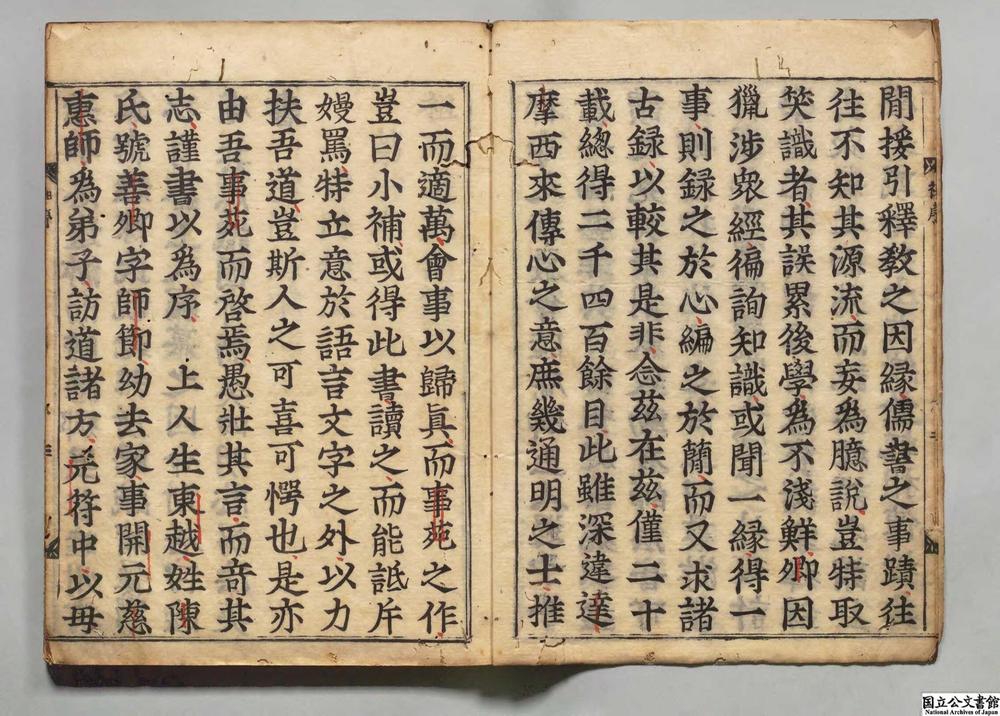 閒援引釋敎之因縁儒書之事蹟往
往不知其源流而妄爲臆說豈特取
笑識者其誤累後學爲不淺鮮卿因
獵涉衆經徧詢知識或聞一縁得一
事則録之於心編之於簡而又求諸
古録以較其是非念兹在兹僅二十
載總得二千四百餘目此雖深違達
摩西來傳心之意庶幾通明之士推
一而適萬會事以歸眞而事苑之作
豈曰小補或得此書讀之而能詆斥
嫚罵特立意於語言文字之外以力
扶吾道豈斯人之可喜可愕也是亦
由吾事苑而啓焉愚壯其言而竒其
志謹書以為序上人生東越姓陳
氏號善卿字師節幼去家事開元慈
惠師爲弟子訪道諸方元符中以母
国立公文書館
National Archives of Japan